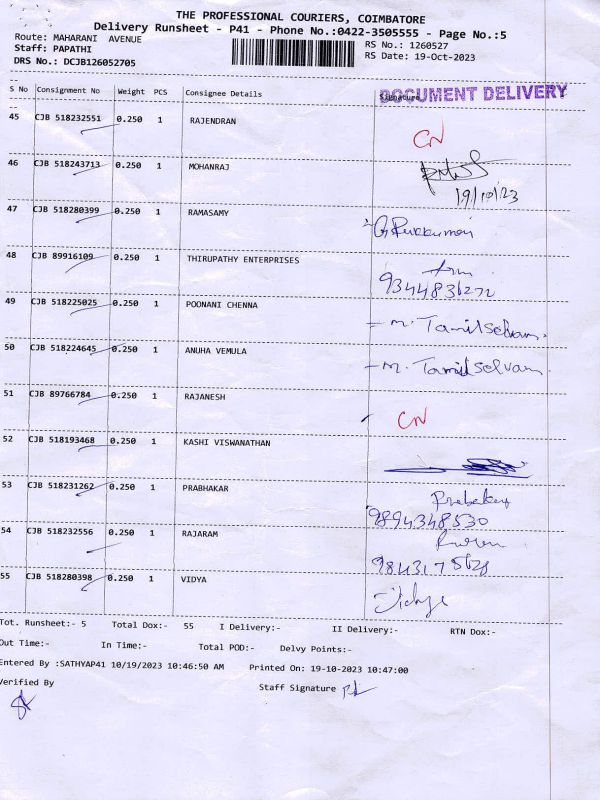 THE PROFESSIONAL COURIERS, COIMBATORE
Delivery Runsheet - P41 - Phone No.:0422-3505555 - Page No.:5
Route: MAHARANI AVENUE
RS No.: 1260527
Staff: PAPATHI
RS Date: 19-Oct-2023
DRS No.: DCJB126052705
DOCUMENT DELIVERY
S No Consignment No Weight PCS Consignee Details Signature
45 CJB 518232551 0.250 1 RAJENDRAN
CN
46 CJB 518243713 0.250 1 MOHANRAJ
19/10/23
47 CJB 518280399 0.250 1 RAMASAMY
48 CJB 89916109 0.250 1 THIRUPATHY ENTERPRISES
9344836272
49 CJB 518225025 0.250 1 POONANI CHENNA
- M. Tamilselvam.
50 CJB 518224645 0.250 1 ANUHA VEMULA
- M. Tamilselvam.
51 CJB 89766784 0.250 1 RAJANESH
CN
52 CJB 518193468 0.250 1 KASHI VISWANATHAN
53 CJB 518231262 0.250 1 PRABHAKAR
Prabakar
9894348530
54 CJB 518232556 0.250 1 RAJARAM
55 CJB 518280398 0.250 1 VIDYA
Vidya
Tot. Runsheet:- 5 Total Dox:- 55 I Delivery:- II Delivery:- RTN Dox:-
Out Time:- In Time:- Total POD:- Delvy Points:-
Entered By :SATHYAP41 10/19/2023 10:46:50 AM Printed On: 19-10-2023 10:47:00
Verified By Staff Signature